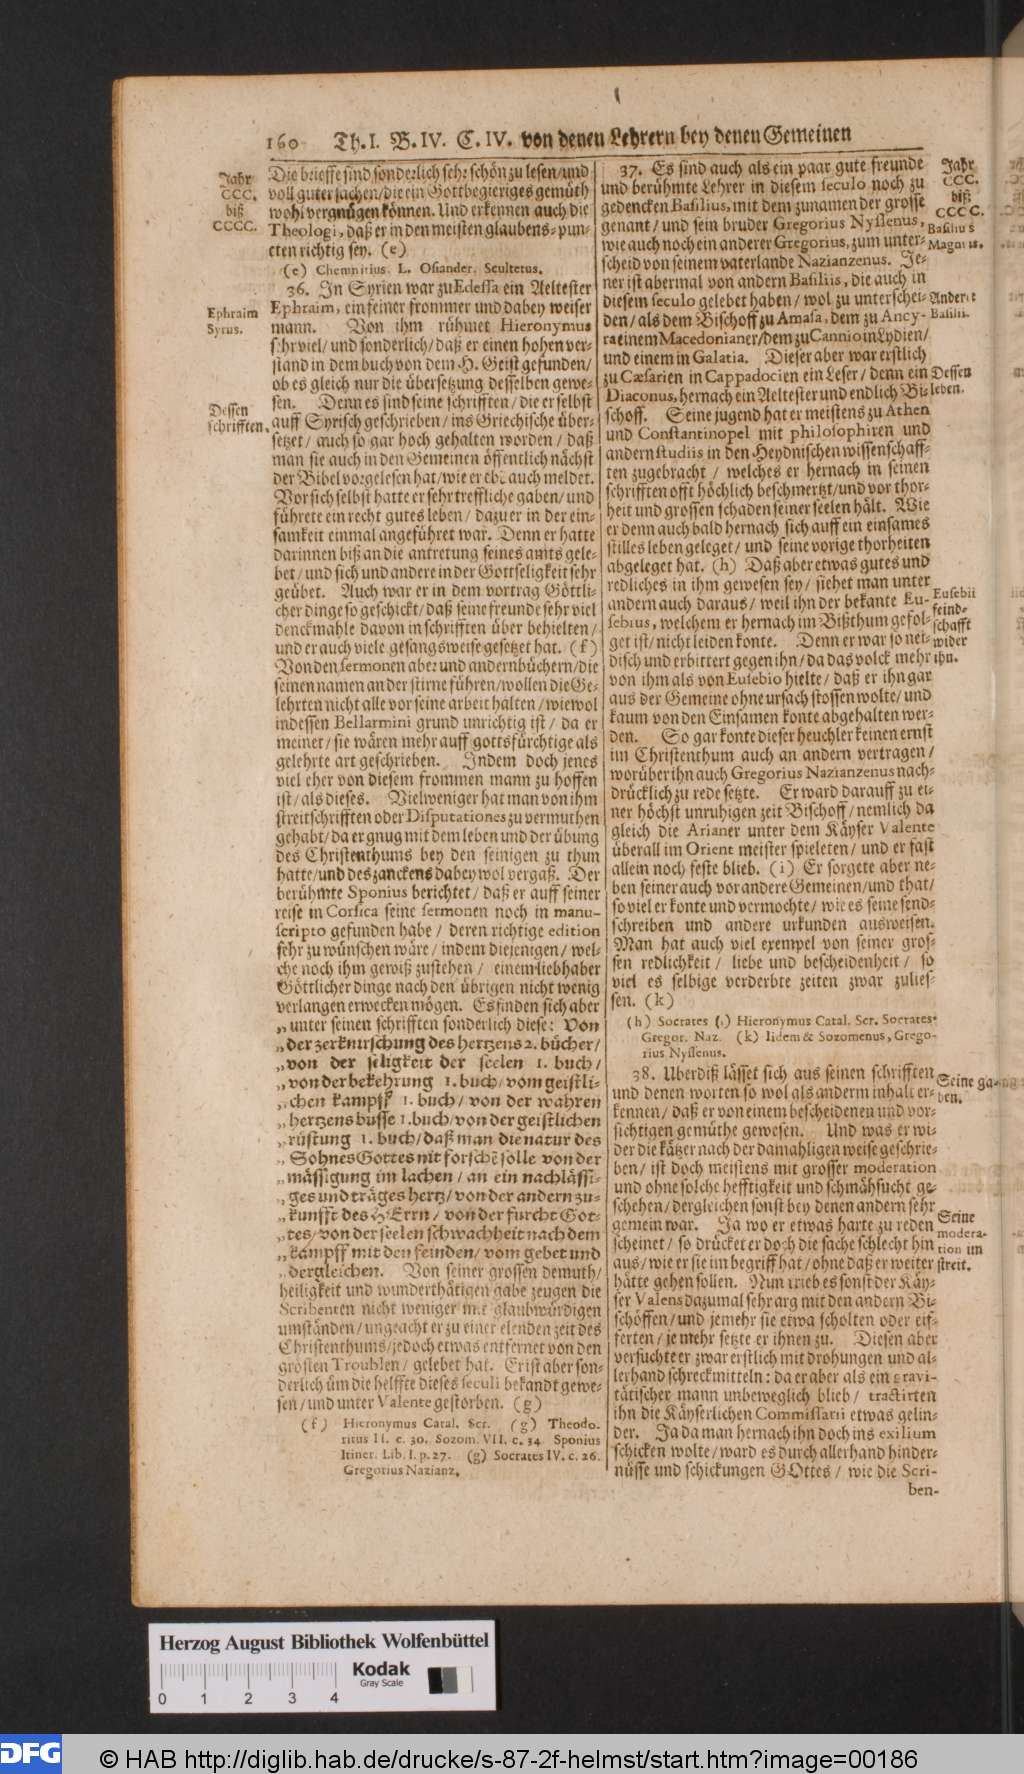 160 Th. I. B. IV. C. IV. von denen Lehrern bey denen Gemeinen
Jahr
CCC.
biß
CCCC.
Die brieffe sind sonderlich sehr schön zu lesen/und
voll guter sachen/die ein Gottbegieriges gemüth
wohl vergnügen können. Und erkennen auch die
Theologi, daß er in den meisten glaubens-pun-
cten richtig sey. (e)
(e) Chemnitius. L. Osiander. Scultetus.
Ephraim
Syrus.
36. In Syrien war zu Edessa ein Aeltester
Ephraim, ein feiner frommer und dabey weiser
mann. Von ihm rühmet Hieronymus
sehr viel/ und sonderlich/ daß er einen hohen ver-
stand in dem buch von dem H. Geist gefunden/
ob es gleich nur die übersetzung desselben gewe-
sen. Denn es sind seine schrifften/ die er selbst
Dessen
schrifften.
auff Syrisch geschrieben/ ins Griechische über-
setzet/ auch so gar hoch gehalten worden/ daß
man sie auch in den Gemeinen öffentlich nächst
der Bibel vorgelesen hat/wie er eben auch meldet.
Vor sich selbst hatte er sehr treffliche gaben/ und
führete ein recht gutes leben/ dazu er in der ein-
samkeit einmal angeführet war. Denn er hatte
darinnen biß an die antretung seines amts gele-
bet/ und sich und andere in der Gottseligkeit sehr
geübet. Auch war er in dem vortrag Göttli-
cher dinge so geschickt/ daß seine freunde sehr viel
denckmahle davon in schrifften über behielten/
und er auch viele gesangsweise gesetzet hat. (f)
Von den sermonen aber und andern büchern/die
seinen namen an der stirne führen/wollen die Ge-
lehrten nicht alle vor seine arbeit halten/ wiewol
indessen Bellarmini grund unrichtig ist/ da er
meinet/ sie wären mehr auff gottsfürchtige als
gelehrte art geschrieben. Indem doch jenes
viel eher von diesem frommen mann zu hoffen
ist/ als dieses. Vielweniger hat man von ihm
streitschrifften oder Disputationes zu vermuthen
gehabt/ da er gnug mit dem leben und der übung
des Christenthums bey den seinigen zu thun
hatte/und des zanckens dabey wol vergaß. Der
berühmte Sponius berichtet/ daß er auff seiner
reise in Corsica seine sermonen noch in manu-
scripto gefunden habe/ deren richtige edition
sehr zu wünschen wäre/ indem diejenigen/ wel-
che noch ihm gewiß zustehen/ einem liebhaber
Göttlicher dinge nach den übrigen nicht wenig
verlangen erwecken mögen. Es finden sich aber
„ unter seinen schrifften sonderlich diese: Von
„ der zerknirschung des hertzens 2. bücher/
„ von der seligkeit der seelen 1. buch/
„ von der bekehrung 1. buch/ vom geistli-
„ chen kampff 1. buch/ von der wahren
„ hertzens busse 1. buch/ von der geistlichen
„ rüstung 1. buch/ daß man die natur des
„ Sohnes Gottes nit forschē solle von der
„ mässigung im lachen/ an ein nachlässi-
„ ges und träges hertz/ von der andern zu-
„ kunfft des HErrn/ von der furcht Got-
„ tes/ von der seelen schwachheit nach dem
„ kampff mit den feinden/ vom gebet und
„ dergleichen. Von seiner grossen demuth/
heiligkeit und wunderthätigen gabe zeugen die
Scribenten nicht weniger mit glaubwürdigen
umständen/ ungeacht er zu einer elenden zeit des
Christenthums/jedoch etwas entfernet von den
grösten Troublen/ gelebet hat. Er ist aber son-
derlich üm die helffte dieses seculi bekandt gewe-
sen/ und unter Valente gestorben. (g)
(f) Hieronymus Catal. Scr. (g) Theodo-
ritus II. c. 30. Sozom. VII. c. 34 Sponius
Itiner. Lib. I. p. 27. (g) Socrates IV. c. 26.
Gregorius Nazianz.
37. Es sind auch als ein paar gute freunde
und berühmte Lehrer in diesem seculo noch zu
gedencken Basilius, mit dem zunamen der grosse
genant/ und sein bruder Gregorius Nyssenus,
wie auch noch ein anderer Gregorius, zum unter-
scheid von seinem vaterlande Nazianzenus. Je-
ner ist abermal von andern Basiliis, die auch in
diesem seculo gelebet haben/ wol zu unterschei-
den/ als dem Bischoff zu Amasa, dem zu Ancy-
ra einem Macedonianer/dem zu Cannio in Lydien/
und einem in Galatia. Dieser aber war erstlich
zu Cæsarien in Cappadocien ein Leser/ denn ein
Diaconus, hernach ein Aeltester und endlich Bi-
schoff. Seine jugend hat er meistens zu Athen
und Constantinopel mit philosophiren und
andern studiis in den Heydnischen wissenschaff-
ten zugebracht/ welches er hernach in seinen
schrifften offt höchlich beschmertzt/und vor thor-
heit und grossen schaden seiner seelen hält. Wie
er denn auch bald hernach sich auff ein einsames
stilles leben geleget/ und seine vorige thorheiten
abgeleget hat. (h) Daß aber etwas gutes und
redliches in ihm gewesen sey/ siehet man unter
andern auch daraus/ weil ihn der bekante Eu-
sebius, welchem er hernach im Bißthum gefol-
get ist/ nicht leiden konte. Denn er war so nei-
disch und erbittert gegen ihn/ da das volck mehr
von ihm als von Eusebio hielte/ daß er ihn gar
aus der Gemeine ohne ursach stossen wolte/ und
kaum von den Einsamen konte abgehalten wer-
den. So gar konte dieser heuchler keinen ernst
im Christenthum auch an andern vertragen/
worüber ihn auch Gregorius Nazianzenus nach-
drücklich zu rede setzte. Er ward darauff zu ei-
ner höchst unruhigen zeit Bischoff/ nemlich da
gleich die Arianer unter dem Käyser Valente
überall im Orient meister spieleten/ und er fast
allein noch feste blieb. (i) Er sorgete aber ne-
ben seiner auch vor andere Gemeinen/und that/
so viel er konte und vermochte/ wie es seine send-
schreiben und andere urkunden ausweisen.
Man hat auch viel exempel von seiner gros-
sen redlichkeit/ liebe und bescheidenheit/ so
viel es selbige verderbte zeiten zwar zulies-
sen. (k)
(h) Socrates (i) Hieronymus Catal. Scr. Socrates.
Gregor. Naz. (k) Iidem & Sozomenus, Grego-
rius Nyssenus.
38. Uberdiß lässet sich aus seinen schrifften
und denen worten so wol als anderm inhalt er-
kennen/ daß er von einem bescheidenen und vor-
sichtigen gemüthe gewesen. Und was er wi-
der die kätzer nach der damahligen weise geschrie-
ben/ ist doch meistens mit grosser moderation
und ohne solche hefftigkeit und schmähsucht ge-
schehen/ dergleichen sonst bey denen andern sehr
gemein war. Ja wo er etwas harte zu reden
scheinet/ so drücket er doch die sache schlecht hin
aus/ wie er sie im begriff hat/ ohne daß er weiter
hätte gehen sollen. Nun trieb es sonst der Käy-
ser Valens dazumal sehr arg mit den andern Bi-
schöffen/ und jemehr sie etwa scholten oder eif-
ferten/ je mehr setzte er ihnen zu. Diesen aber
versuchte er zwar erstlich mit drohungen und al-
lerhand schreckmitteln: da er aber als ein gravi-
tätischer mann unbeweglich blieb/ tractirten
ihn die Käyserlichen Commissarii etwas gelin-
der. Ja da man hernach ihn doch ins exilium
schicken wolte/ ward es durch allerhand hinder-
nüsse und schickungen GOttes/ wie die Scri-
ben-
Jahr
CCC.
biß
CCCC.
Basilius
Magnus.
Andere
Basilii.
Dessen
leben.
Eusebii
feind-
schafft
wider
ihn.
Seine ga-
ben.
Seine
modera-
tion im
streit.
Herzog August Bibliothek Wolfenbüttel
Kodak
Gray Scale
0 1 2 3 4
DFG © HAB http://diglib.hab.de/drucke/s-87-2f-helmst/start.htm?image=00186